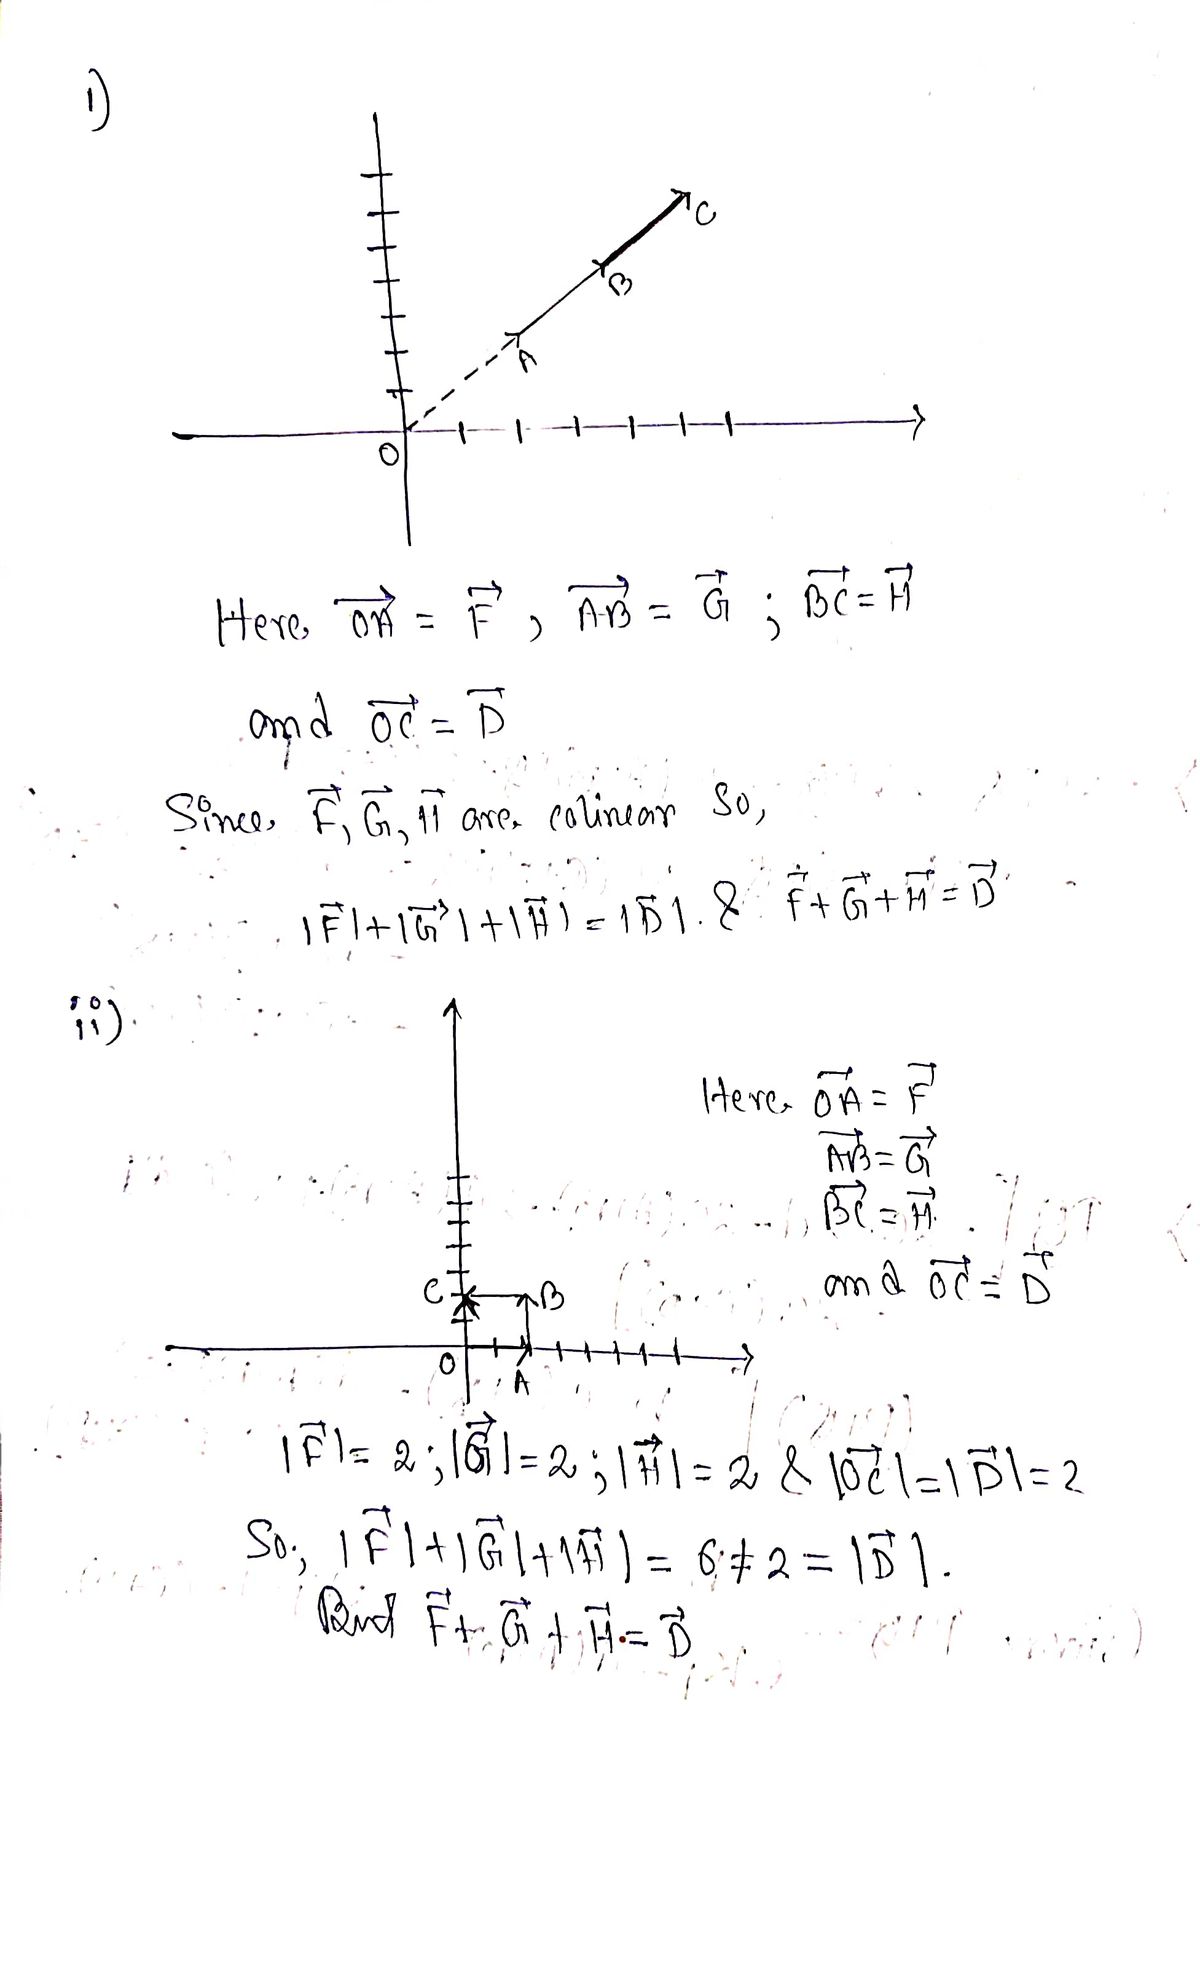 i)
C
B
A
O
Here, \overrightarrow{OA} = \vec{F} , \overrightarrow{AB} = \vec{G} ; \overrightarrow{BC} = \vec{H}
and \overrightarrow{OC} = \vec{D}
Since, \vec{F}, \vec{G}, \vec{H} are colinear So,
|\vec{F}|+|\vec{G}|+|\vec{H}| = |\vec{D}|. & \vec{F}+\vec{G}+\vec{H} = \vec{D}
ii).
Here \overrightarrow{OA} = \vec{F}
\overrightarrow{AB} = \vec{G}
\overrightarrow{BC} = \vec{H}.
and \overrightarrow{OC} = \vec{D}
C
B
O
A
|\vec{F}| = 2 ; |\vec{G}| = 2 ; |\vec{H}| = 2 & |\overrightarrow{OC}| = |\vec{D}| = 2
So, |\vec{F}|+|\vec{G}|+|\vec{H}| = 6 ≠ 2 = |\vec{D}|.
But \vec{F}+\vec{G}+\vec{H} = \vec{D}